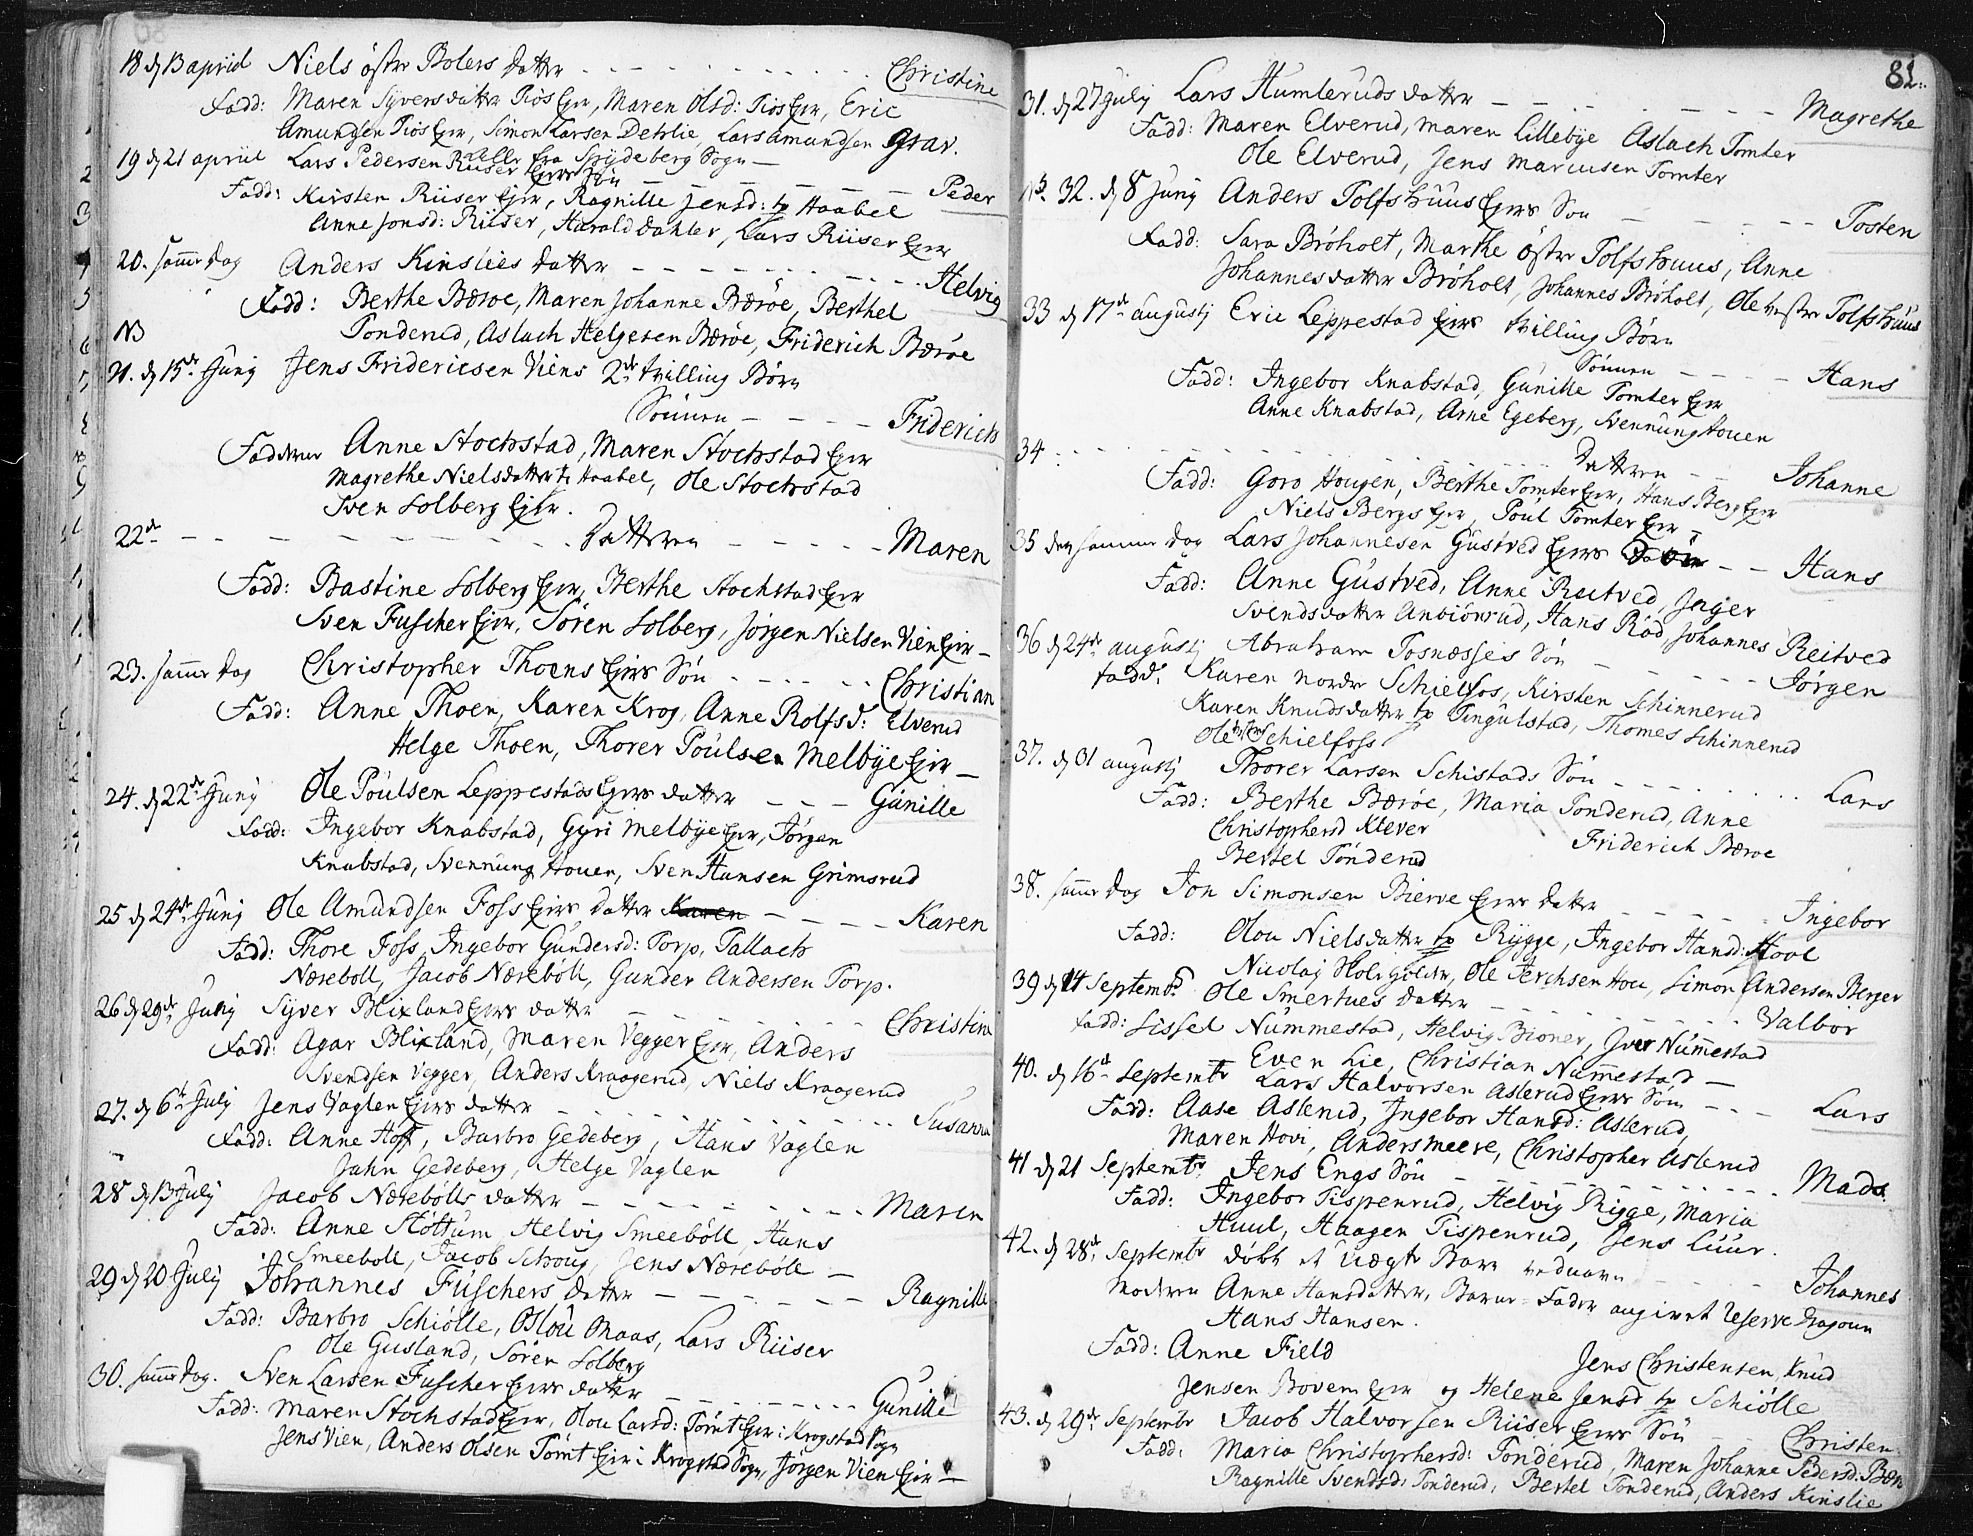 18 d 13 april Niels östre Bolers datter - - - Christine
Fadd: Maren Syversdatter Riös Eier, Maren Olsd: Riös Eier, Eric
Amundsen Riös Eier, Simon Larsen Dehlie, Lars Amundsen Grav.
19 d 21 april Lars Pedersen Riiser Eiers Sön
eller fra Spydeberg Sogn - Peder
Fadd: Kirsten Riiser Eier, Ragnille Jensd: tp Haabel
Anne Jonsd: Riiser, Harald Dahler, Lars Riiser Eier
20. samme dag Anders Kinslies datter - - - Helvig
Fadd: Berthe Bæroe, Maren Johanne Bæroe, Berthel
NB Tonderud, Aslach Helgesen Bæroe, Friderich Bæroe
21. d 15de Junij Jens Fridericsen Viens 2de tvilling Börn
Sönnen - - - Friderich
Fadderne Anne Stochstad, Maren Stochstad Eier
Magrethe Nielsdatter tp Haabel, Ole Stochstad
Sven Solberg Eier.
22de - - - Datteren - - - Maren
Fadd: Bastine Solberg Eier, Berthe Stochstad Eier
Sven Fuscher Eier, Sören Solberg, Jörgen Nielsen Vien Eier -
23. samme dag Christopher Thoens Eiers Sön - - - Christian
Fadd: Anne Thoen, Karen Krog, Anne Rolfsd: Elverud
Helge Thoen, Thorer Poulsen Melbye Eier -
24. d 22de Junij Ole Poulsen Leppestads Eiers datter - - - Gunille
Fadd: Ingebor Knabstad, Gyri Melbye Eier, Jörgen
Knabstad, Svennung Houen, Sven Hansen Grimsrud
25 d 24de Junij Ole Amundsen Foss Eiers datter Karen - - - Karen
Fad: Thore Foss, Ingebor Gundersd: Torp, Tallach
Næreböll, Jacob Næreböll, Gunder Andersen Torp.
26 d 29de Junij Syver Blixland Eiers datter - - - Christine
Fadd: Agar Blixland, Maren Vegger Eier, Anders
Svendsen Vegger, Anders Kraagerud, Niels Kraagerud
27. d 6te Julij Jens Vaglen Eiers datter - - - Susanna
Fadd: Anne Hoff, Barbro Gedeberg, Hans Vaglen
Jahn Gedeberg, Helge Vaglen
28 d 13 Julij Jacob Nærebölls datter - - - Maren
Fadd: Anne Slöttum, Helvig Smeeböll, Hans
Smeeboll, Jacob Schoug, Jens Næreböll -
29 d 20 Julij Johannes Fuschers datter - - - Ragnille
Fadd: Barbro Schiölle, Oslou Maas, Lars Riiser
Ole Gusland, Sören Solberg
30. samme dag. Sven Larsen Fuscher Eiers datter - - - Gunille
Fadd: Maren Stochstad Eier, Olou Larsd: Tömt Eier i Krogstad Sogn
Jens Vien, Anders Olsen Tömt Eier i Krogstad Sogn, Jörgen Vien Eier -
81.
31. d 27 Julij Lars Humleruds datter - - - Magrethe
Fadd: Maren Elverud, Maren Lillebye Aslach Tomter
Ole Elverud, Jens Marcusen Tomter
No. 32. d 8 Junij Anders Tolfshuus Eiers Sön - - - Tosten
Fadd: Sara Bröholt, Marthe östre Tolfshuus, Anne
Johannesdatter Bröholt, Johannes Bröholt, Ole vestre Tolfshuus
33 d 17de augustj Eric Leppestad Eiers tvilling Börn
Sönnen - - - Hans
Fadd: Ingebor Knabstad, Gunille Tomter Eier
Anne Knabstad, Arne Egeberg, Svennung Houen
34 - - - Datteren - - - Johanne
Fadd: Goro Hougen, Berthe Tomter Eier, Hans Berg Eier
Niels Bergs Eier, Poul Tomter Eier -
35 den samme dag Lars Johannesen Gustved Eiers Sön - - Hans
Fadd: Anne Gustved, Anne Reitved, Inger
Svendsdatter Anbiönrud, Hans Röd, Johannes Reitved
36 d 24de augustj Abraham Tosnæsses Sön - - - Jörgen
fadd: Karen nordre Schielfos, Kirsten Schinnerud
Karen Knudsdatter tp Tingulstad, Thomes Schinnerud
Ole östre Schielfoss
37. d 31 augustj Thorer Larsen Schistads Sön - - - Lars
Fadd: Berthe Bæroe, Maria Tonderud, Anne
Christophersd Klever Friderich Bæroe
Bertel Tönderud
38. samme dag Jon Simonsen Bierve Eiers datter - - - Ingebor
Fadd: Olou Nielsdatter tp Rygge, Ingebor Hansd: Hovl
Nicolaj Skolegolder, Ole Terchsen Hou, Simon Andersen Berger
39 d 14 Septembr Ole Smertues datter - - - Valbor
fadd: Sissel Nummestad, Helvig Bioner, Iver Nummestad
Even Lie, Christian Nummestad -
40. d 16de Septembr Lars Halvorsen Aslerud Eiers Sön - - - Lars
Fadd: Aase Aslerud, Ingebor Hansd: Aslerud,
Maren Hovi, Anders Meere, Christopher Aslerud
41 d 21 Septembr Jens Engs Sön - - - Mads.
Fadd: Ingebor Tispenrud, Helvig Rigge, Maria
Huul, Haagen Tispenrud, Jens Luur.
42. d 28de Septembr döbt et Uægte Barn ved navn - - - Johannes
Moderen Anne Hansdatter, Barne-Fader angivet Reserve Dragoun
Hans Hansen.
Fadd: Anne Field Jens Christensen, Knud
Jensen Boven Eier og Helene Jensd tp Schiölle
43. d 29de Septembr Jacob Halvorsen Riiser Eiers Sön - - Christen
Fadd: Maria Christophersd: Tonderud, Maren Johanne Pedersd. Bæroe
Ragnille Svendsd: Tonderud, Bertel Tonderud, Anders Kinslie